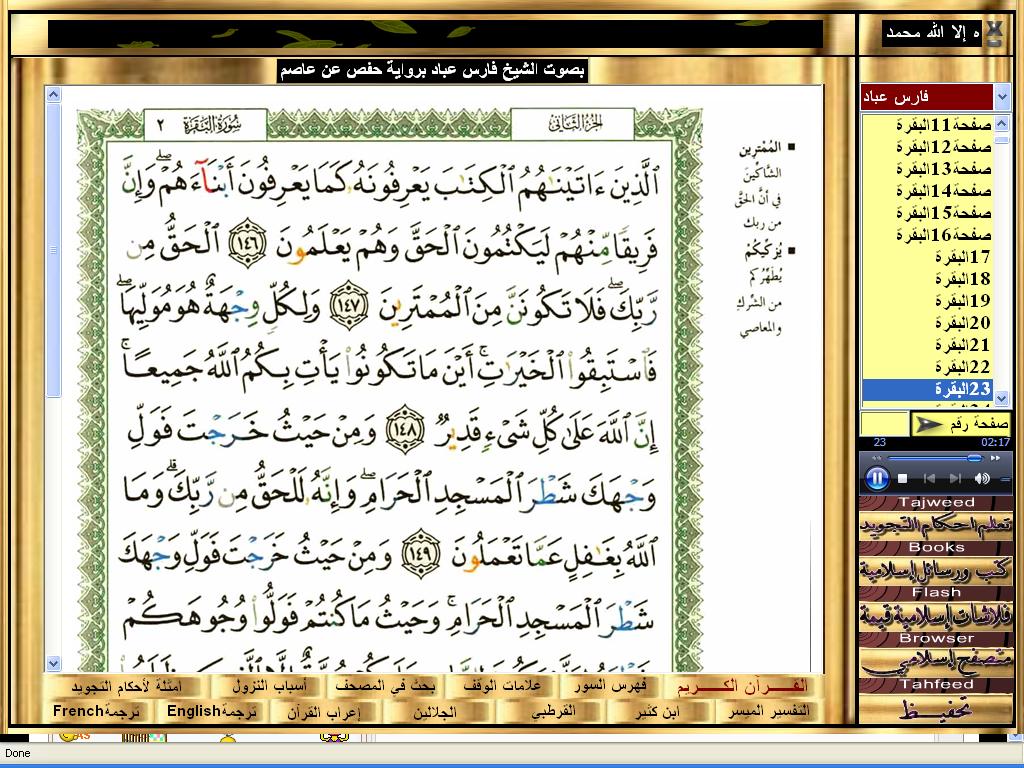 ه إلا الله محمد
X
بصوت الشيخ فارس عباد برواية حفص عن عاصم
فارس عباد
صفحة11البقرة
صفحة12البقرة
صفحة13البقرة
صفحة14البقرة
صفحة15البقرة
صفحة16البقرة
17البقرة
18البقرة
19البقرة
20البقرة
21البقرة
22البقرة
23البقرة
صفحة رقم
23
02:17
Tajweed
تعلم احكام التجويد
Books
كتب ورسائل إسلامية
Flash
فلاشات إسلامية قيمة
Browser
متصفح إسلامي
Tahfeed
تحفيظ
الجزء الثاني
سورة البقرة ٢
ٱلَّذِينَ ءَاتَيْنَٰهُمُ ٱلْكِتَٰبَ يَعْرِفُونَهُۥ كَمَا يَعْرِفُونَ أَبْنَآءَهُمْ ۖ وَإِنَّ
فَرِيقًا مِّنْهُمْ لَيَكْتُمُونَ ٱلْحَقَّ وَهُمْ يَعْلَمُونَ ١٤٦ ٱلْحَقُّ مِن
رَّبِّكَ ۖ فَلَا تَكُونَنَّ مِنَ ٱلْمُمْتَرِينَ ١٤٧ وَلِكُلٍّ وِجْهَةٌ هُوَ مُوَلِّيهَا ۖ
فَٱسْتَبِقُوا۟ ٱلْخَيْرَٰتِ ۚ أَيْنَ مَا تَكُونُوا۟ يَأْتِ بِكُمُ ٱللَّهُ جَمِيعًا ۚ
إِنَّ ٱللَّهَ عَلَىٰ كُلِّ شَىْءٍ قَدِيرٌ ١٤٨ وَمِنْ حَيْثُ خَرَجْتَ فَوَلِّ
وَجْهَكَ شَطْرَ ٱلْمَسْجِدِ ٱلْحَرَامِ ۖ وَإِنَّهُۥ لَلْحَقُّ مِن رَّبِّكَ ۗ وَمَا
ٱللَّهُ بِغَٰفِلٍ عَمَّا تَعْمَلُونَ ١٤٩ وَمِنْ حَيْثُ خَرَجْتَ فَوَلِّ وَجْهَكَ
شَطْرَ ٱلْمَسْجِدِ ٱلْحَرَامِ ۚ وَحَيْثُ مَا كُنتُمْ فَوَلُّوا۟ وُجُوهَكُمْ
■ المُمْترِين
الشَّاكِّينَ
في أنَّ الحَقَّ
من ربك
■ يُزَكِّيكُمْ
يُطَهِّرُكم
من الشِّركِ
والمعاصي
القـــرآن الكـــريم
فهرس السور
علامات الوقف
بحث في المصحف
أسباب النزول
أمثلة لأحكام التجويد
التفسير الميسر
ابن كثير
القرطبي
الجلالين
إعراب القرآن
ترجمة English
ترجمة French
Done